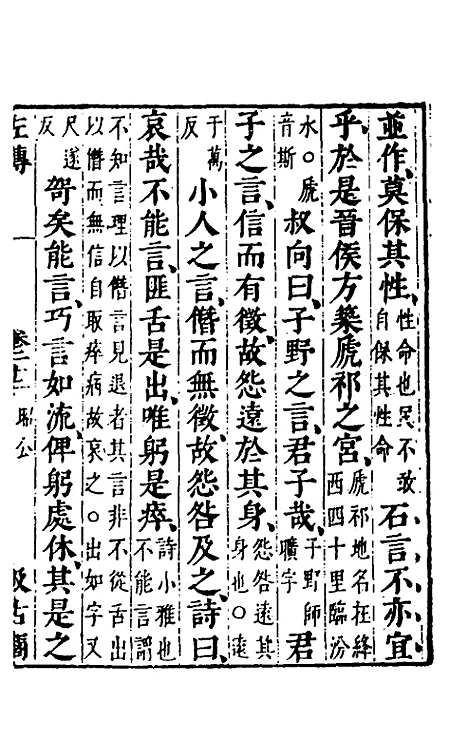 並作、莫保其性、性命也民不敢自保其性命石言不亦宜
乎、於是晉侯方築虒祁之宮、虒祁地名在絳西四十里臨汾
水○虒音斯叔向曰、子野之言、君子哉、子野師曠字君
子之言、信而有徵、故怨遠於其身、怨咎遠其身也○遠
于萬反小人之言、僭而無徵、故怨咎及之、詩曰、
哀哉不能言、匪舌是出、唯躬是瘁、詩小雅也不能言謂
不知言理以僭言見退者其言非不從舌出以僭而無信自取瘁病故哀之○出如字又
尺遂反哿矣能言、巧言如流、俾躬處休、其是之
左傳 卷二十二 昭公 汲古閣